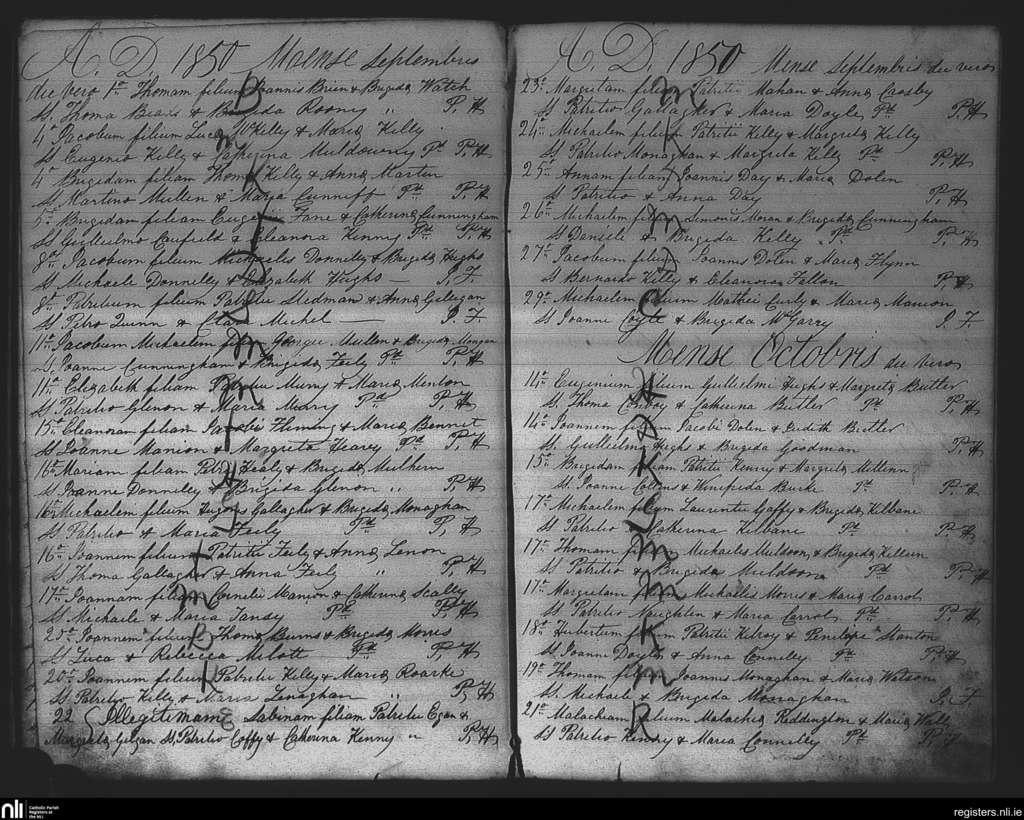 A. D. 1850 Mense Septembris
die vero 1a Thomam filium Joannis Brien & Brigida Watch
SS. Thoma & Brigida Rooney " P. H
4a Jacobum filium Luca McKelly & Maria Kelly
SS Eugenio Kelly & Catherina Muldowny Pd P. H
4a Brigidam filiam Thoma Kelly & Anna Martin
SS Martino Mullen & Maria Cunniff Pd P. H
5a Brigidam filiam Eugenii Fane & Catherina Cunningham
SS Guillielmo Caufield & Eleanora Kenny Pd P. H
8a Jacobum filium Michaelis Donnelly & Brigida Hughs
SS Michaele Donnelly & Elizabeth Hughs — J. F.
8a Patritium filium Patritii Stedman & Anna Gilligan
SS Petro Quinn & Clara Michel — J. F.
11a Jacobum Michaelem filium Georgii Mullen & Brigida Mongan
SS Joanne Cunningham & Brigida Feely Pd P. H
11a Elizabeth filiam Murry & Maria Menton
SS Patritio Glenon & Maria Murry Pd P. H
15a Eleanoram filiam Jacobi Fleming & Maria Bennit
SS Joanne Manion & Margreta Heavy Pd P. H
16a Mariam filiam Patrii Healy & Brigida Mulhern
SS Joanne Donnelly & Brigida Glenon " P. H
16a Michaelem filium Hugonis Gallagher & Brigida Monaghan
SS Patritio & Maria Feely Pd P. H
16a Joannem filium Patritii Feely & Anna Lenon
SS Thoma Gallagher & Anna Feely " P. H
17a Joannam filiam Cornelii Manion & Catherina Scally
SS Michaele & Maria Tansy Pd P. H
20a Joannem filium Thoma Burns & Brigida Morris
SS Luca & Rebecca Milott Pd P. H
20a Joannem filium Patritii Kelly & Maria Roarke
SS Patritio Kelly & Maria Lenaghan " P. H
22 (Illegitimam) Sabinam filiam Patritii Egan &
Margreta Gilgan SS Patritio Coffy & Catherina Kenny " P. H
A. D. 1850 Mense Septembris die vero
23a Margretam filiam Patritii Mahan & Anna Crosby
SS Patritio Gallagher & Maria Doyle Pd P. H
24a Michaelem filium Patritii Kelly & Margreta Kelly
SS Patritio Monaghan & Margreta Kelly Pd P. H
25a Annam filiam Joannis Day & Maria Dolen
SS Patritio & Anna Day P. H
26a Michaelem filium Simonis Moran & Brigida Cunningham
SS Daniele & Brigida Kelly Pd P. H
27a Jacobum filium Joannis Dolen & Maria Flynn
SS Bernardo Kelly & Eleanora Fallon P. H
29a Michaelem filium Mathei Curly & Maria Manion
SS Joanne Coyle & Brigida McGarry J. F
Mense Octobris die vero
14a Eugenium filium Guillielmi Hughs & Margreta Butler
SS. Thoma Conboy & Catherina Butler Pd P. H
14a Joannem filium Jacobi Dolen & Judith Butler
SS Guillielmo Hughs & Brigida Goodman P. H
15a Brigidam filiam Patritii Kenny & Margreta
SS. Joanne Collins & Winefrida Burke Pd P. H
17a Michaelem filium Laurentii Gaffy & Brigida Kilbane
SS Patritio & Catherina Kilbane Pd P. H
17a Thomam filium Michaelis Muldoon & Brigida Killeen
SS Patritio & Brigida Muldoon Pd P. H
17a Margretam filiam Michaelis Morris & Maria Carrol
SS Patritio Naughten & Maria Carrol Pd P. H
18a Hubertum filium Patritii Kilroy & Penelope Stanton
SS Joanne Doyle & Anna Conneley Pd P. H
19a Thomam filium Joannis Monaghan & Maria Watson
SS. Michaele & Brigida Monaghan J. F
21a Malachiam filium Malachia Reddington & Maria
SS Patritio Kenny & Maria Connelly Pd
nli Catholic Parish
Registers at
the NLI
registers.nli.ie